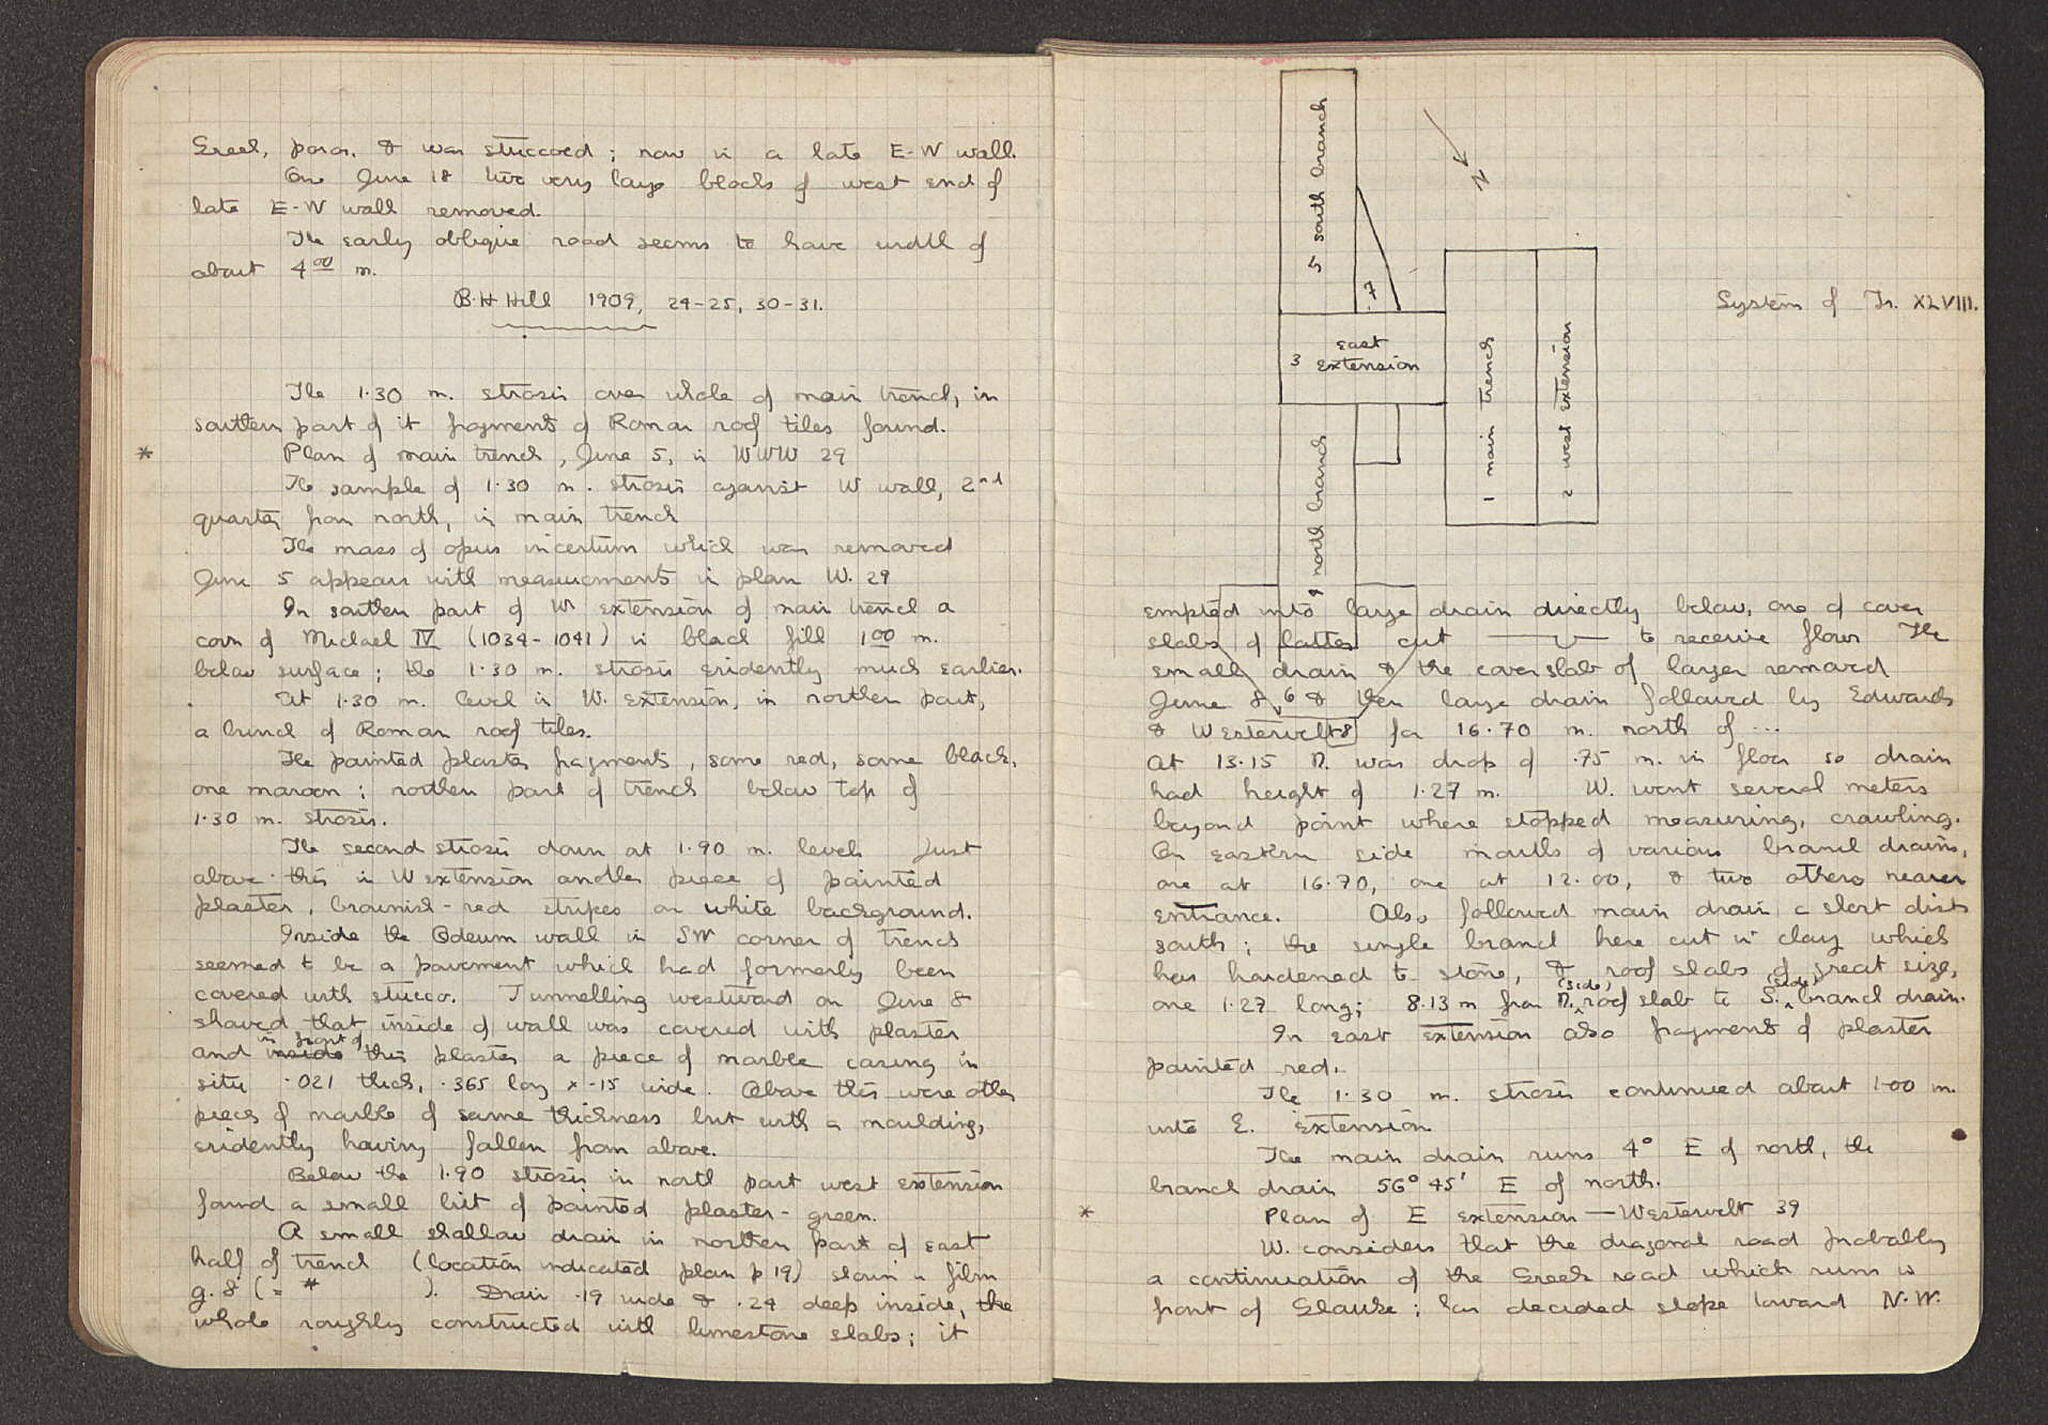 Greek, poros, & was stuccoed; now in a late E-W wall.
On June 18 two very large blocks of west end of
late E-W wall removed.
The early oblique road seems to have width of
about 4.00 m.
B.H Hill 1909, 24-25, 30-31.
The 1.30 m. strosis over whole of main trench, in
southern part of it fragments of Roman roof tiles found.
* Plan of main trench, June 5, in WWW 29
The sample of 1.30 m. strosis against W wall, 2nd
quarter from north, in main trench
The mass of opus incertum which was removed
June 5 appears with measurements in plan W. 29
In southern part of W extension of main trench a
coin of Michael IV (1034-1041) in black fill 1.00 m.
below surface; the 1.30 m. strosis evidently much earlier.
At 1.30 m. level in W. extension, in northern part,
a bunch of Roman roof tiles.
The painted plaster fragments, some red, some black,
one maroon: northern part of trench below top of
1.30 m. strosis.
The second strosis down at 1.90 m. level. Just
above this in W extension another piece of painted
plaster, brownish-red stripes on white background.
Inside the Odeum wall in SW corner of trench
seemed to be a pavement which had formerly been
covered with stucco. Tunnelling westward on June 8
showed that inside of wall was covered with plaster
in front of
and inside this plaster a piece of marble casing in
situ .021 thick, .365 long x .15 wide. Above this were other
pieces of marble of same thickness but with a moulding,
evidently having fallen from above.
Below the 1.90 strosis in north part west extension
found a small bit of painted plaster - green.
A small shallow drain in northern part of east
half of trench (location indicated plan p 19) shown in film
g. 8 (= * ). Drain .19 wide & .24 deep inside, the
whole roughly constructed with limestone slabs; it
5 south branch
N
7
System of Tr. XLVIII.
3 east
extension
1 main trench
2 west extension
4 north branch
emptied into large drain directly below, one of cover
slabs of latter cut to receive flow. The
small drain & the cover slab of larger removed
June 8, & then large drain followed by Edwards
6
& Westervelt for 16.70 m. north of ...
8
At 13.15 N. was drop of .75 m. in floor so drain
had height of 1.27 m. W. went several meters
beyond point where stopped measuring, crawling.
On eastern side mouths of various branch drains,
one at 16.70, one at 12.00, & two others nearer
entrance. Also followed main drain a short dist
south; the single branch here cut in clay which
has hardened to stone, & roof slabs of great size,
(side) (side)
one 1.27 long; 8.13 m from N. roof slab to S. branch drain.
In east extension also fragments of plaster
painted red.
The 1.30 m. strosis continued about 1.00 m.
into E. extension
The main drain runs 4° E of north, the
branch drain 56° 45' E of north.
* Plan of E extension — Westervelt 39
W. considers that the diagonal road probably
a continuation of the Greek road which runs in
front of Glauke; has decided slope toward N.W.